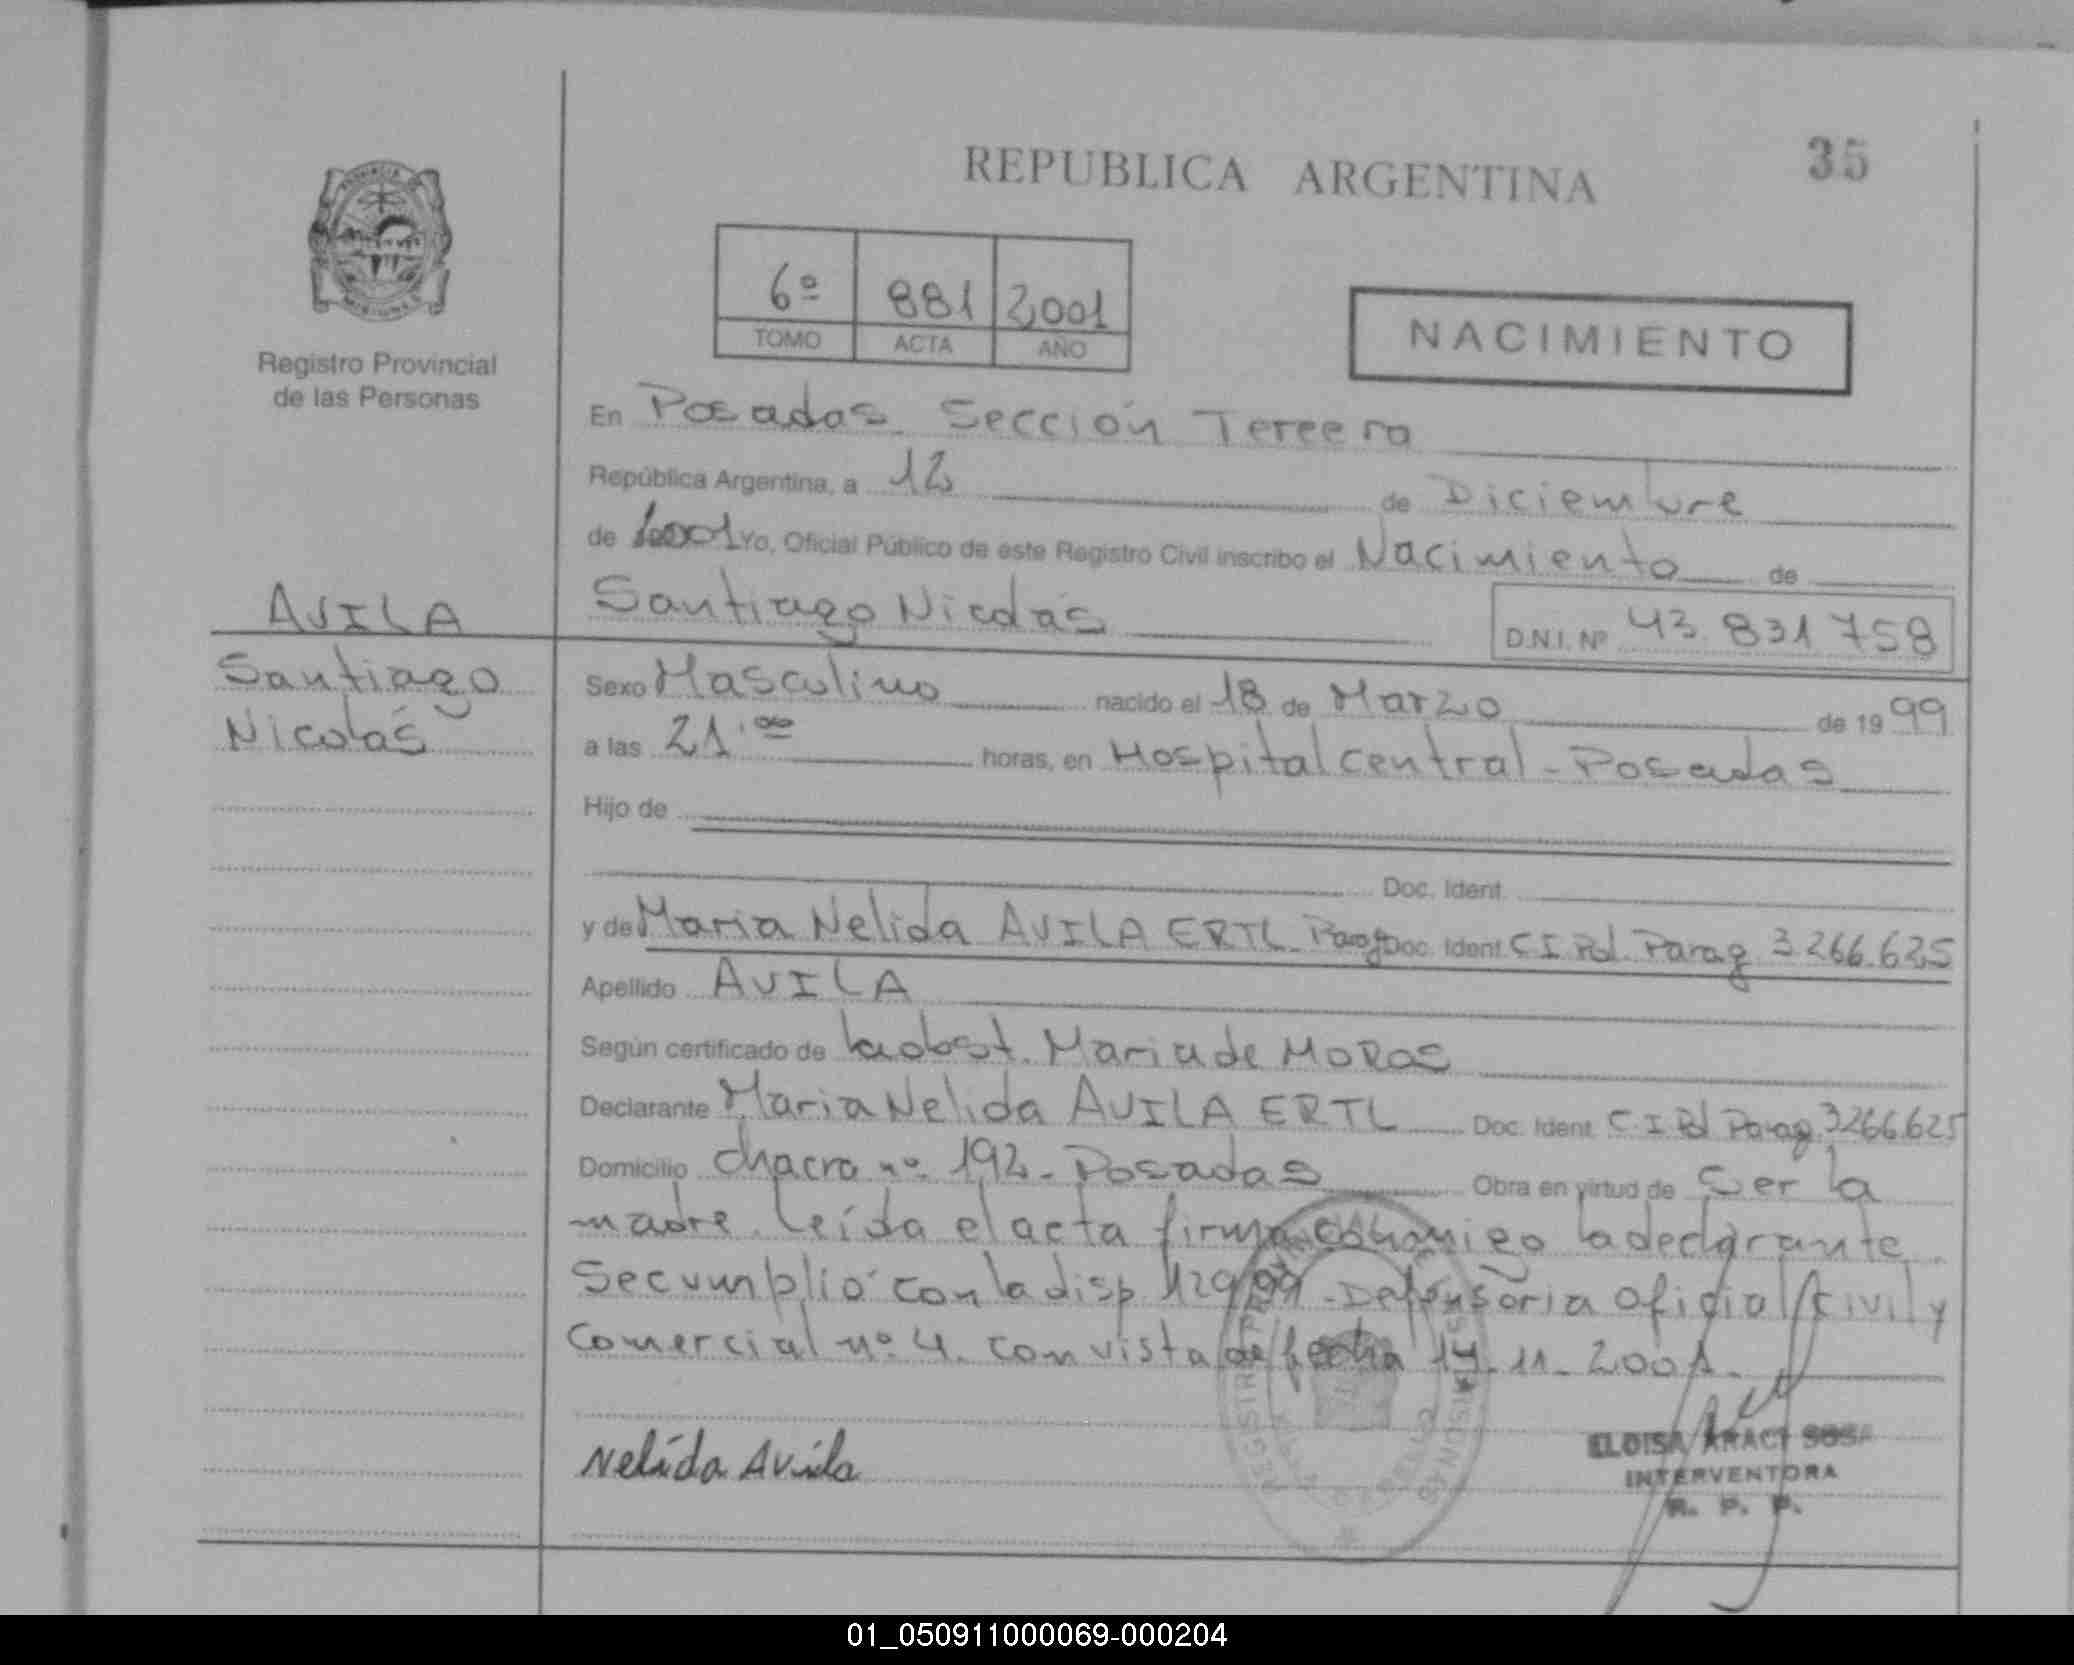 REPUBLICA ARGENTINA
35
6º 881 2001
TOMO ACTA AÑO
NACIMIENTO
Registro Provincial
de las Personas
En Posadas Sección Tercera
República Argentina, a 12 de Diciembre
de 2001 Yo, Oficial Público de este Registro Civil inscribo el Nacimiento de
AVILA
Santiago Nicolás
D.N.I. Nº 43.831758
Santiago
Nicolás
Sexo Masculino nacido el 18 de Marzo de 1999
a las 21.00 horas, en Hospital central - Posadas
Hijo de
Doc. Ident.
y de Maria Nelida AVILA ERTL - Parag Doc. Ident. C I Pol. Parag 3.266.625
Apellido AVILA
Según certificado de la obst. Maria de MoRas
Declarante Maria Nelida AVILA ERTL Doc. Ident. C.I Pol Parag 3266.625
Domicilio chacra nº 192 - Posadas Obra en virtud de Ser la
madre. leída el acta firma conmigo la declarante.
Se cumplió con la disp 129/99 - Defensoria oficial Civil y
Comercial nº 4. con vista de fecha 14-11-2001.
Nelida Avila
ELOISA ARACI SOSA
INTERVENTORA
R. P. P.
01_050911000069-000204